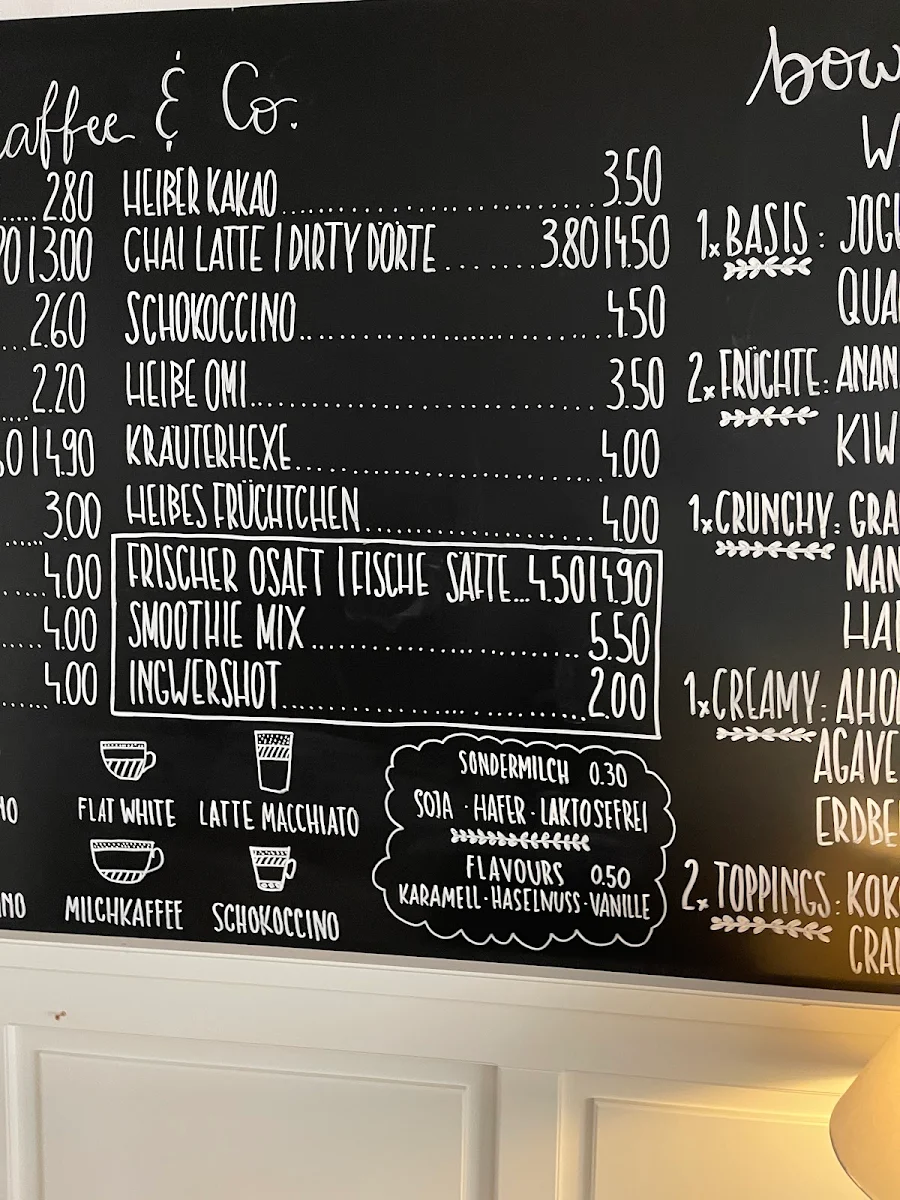 Kaffee & Co.
2.80
3.00
2.60
2.20
4.90
3.00
4.00
4.00
4.00
HEIßER KAKAO 3.50
CHAI LATTE | DIRTY DÖRTE 3.80 | 4.50
SCHOKOCCINO 4.50
HEIßE OMI 3.50
KRÄUTERHEXE 4.00
HEIßES FRÜCHTCHEN 4.00
FRISCHER OSAFT | FISCHE SÄFTE 4.50 | 4.90
SMOOTHIE MIX 5.50
INGWERSHOT 2.00
FLAT WHITE
LATTE MACCHIATO
MILCHKAFFEE
SCHOKOCCINO
SONDERMILCH 0.30
SOJA · HAFER · LAKTOSEFREI
FLAVOURS 0.50
KARAMELL · HASELNUSS · VANILLE
1x BASIS:
2x FRÜCHTE: ANAN
KIW
1x CRUNCHY: GRA
MAN
1x CREAMY: AHO
AGAVE
ERDBE
2x TOPPINGS: KOK
CRAN